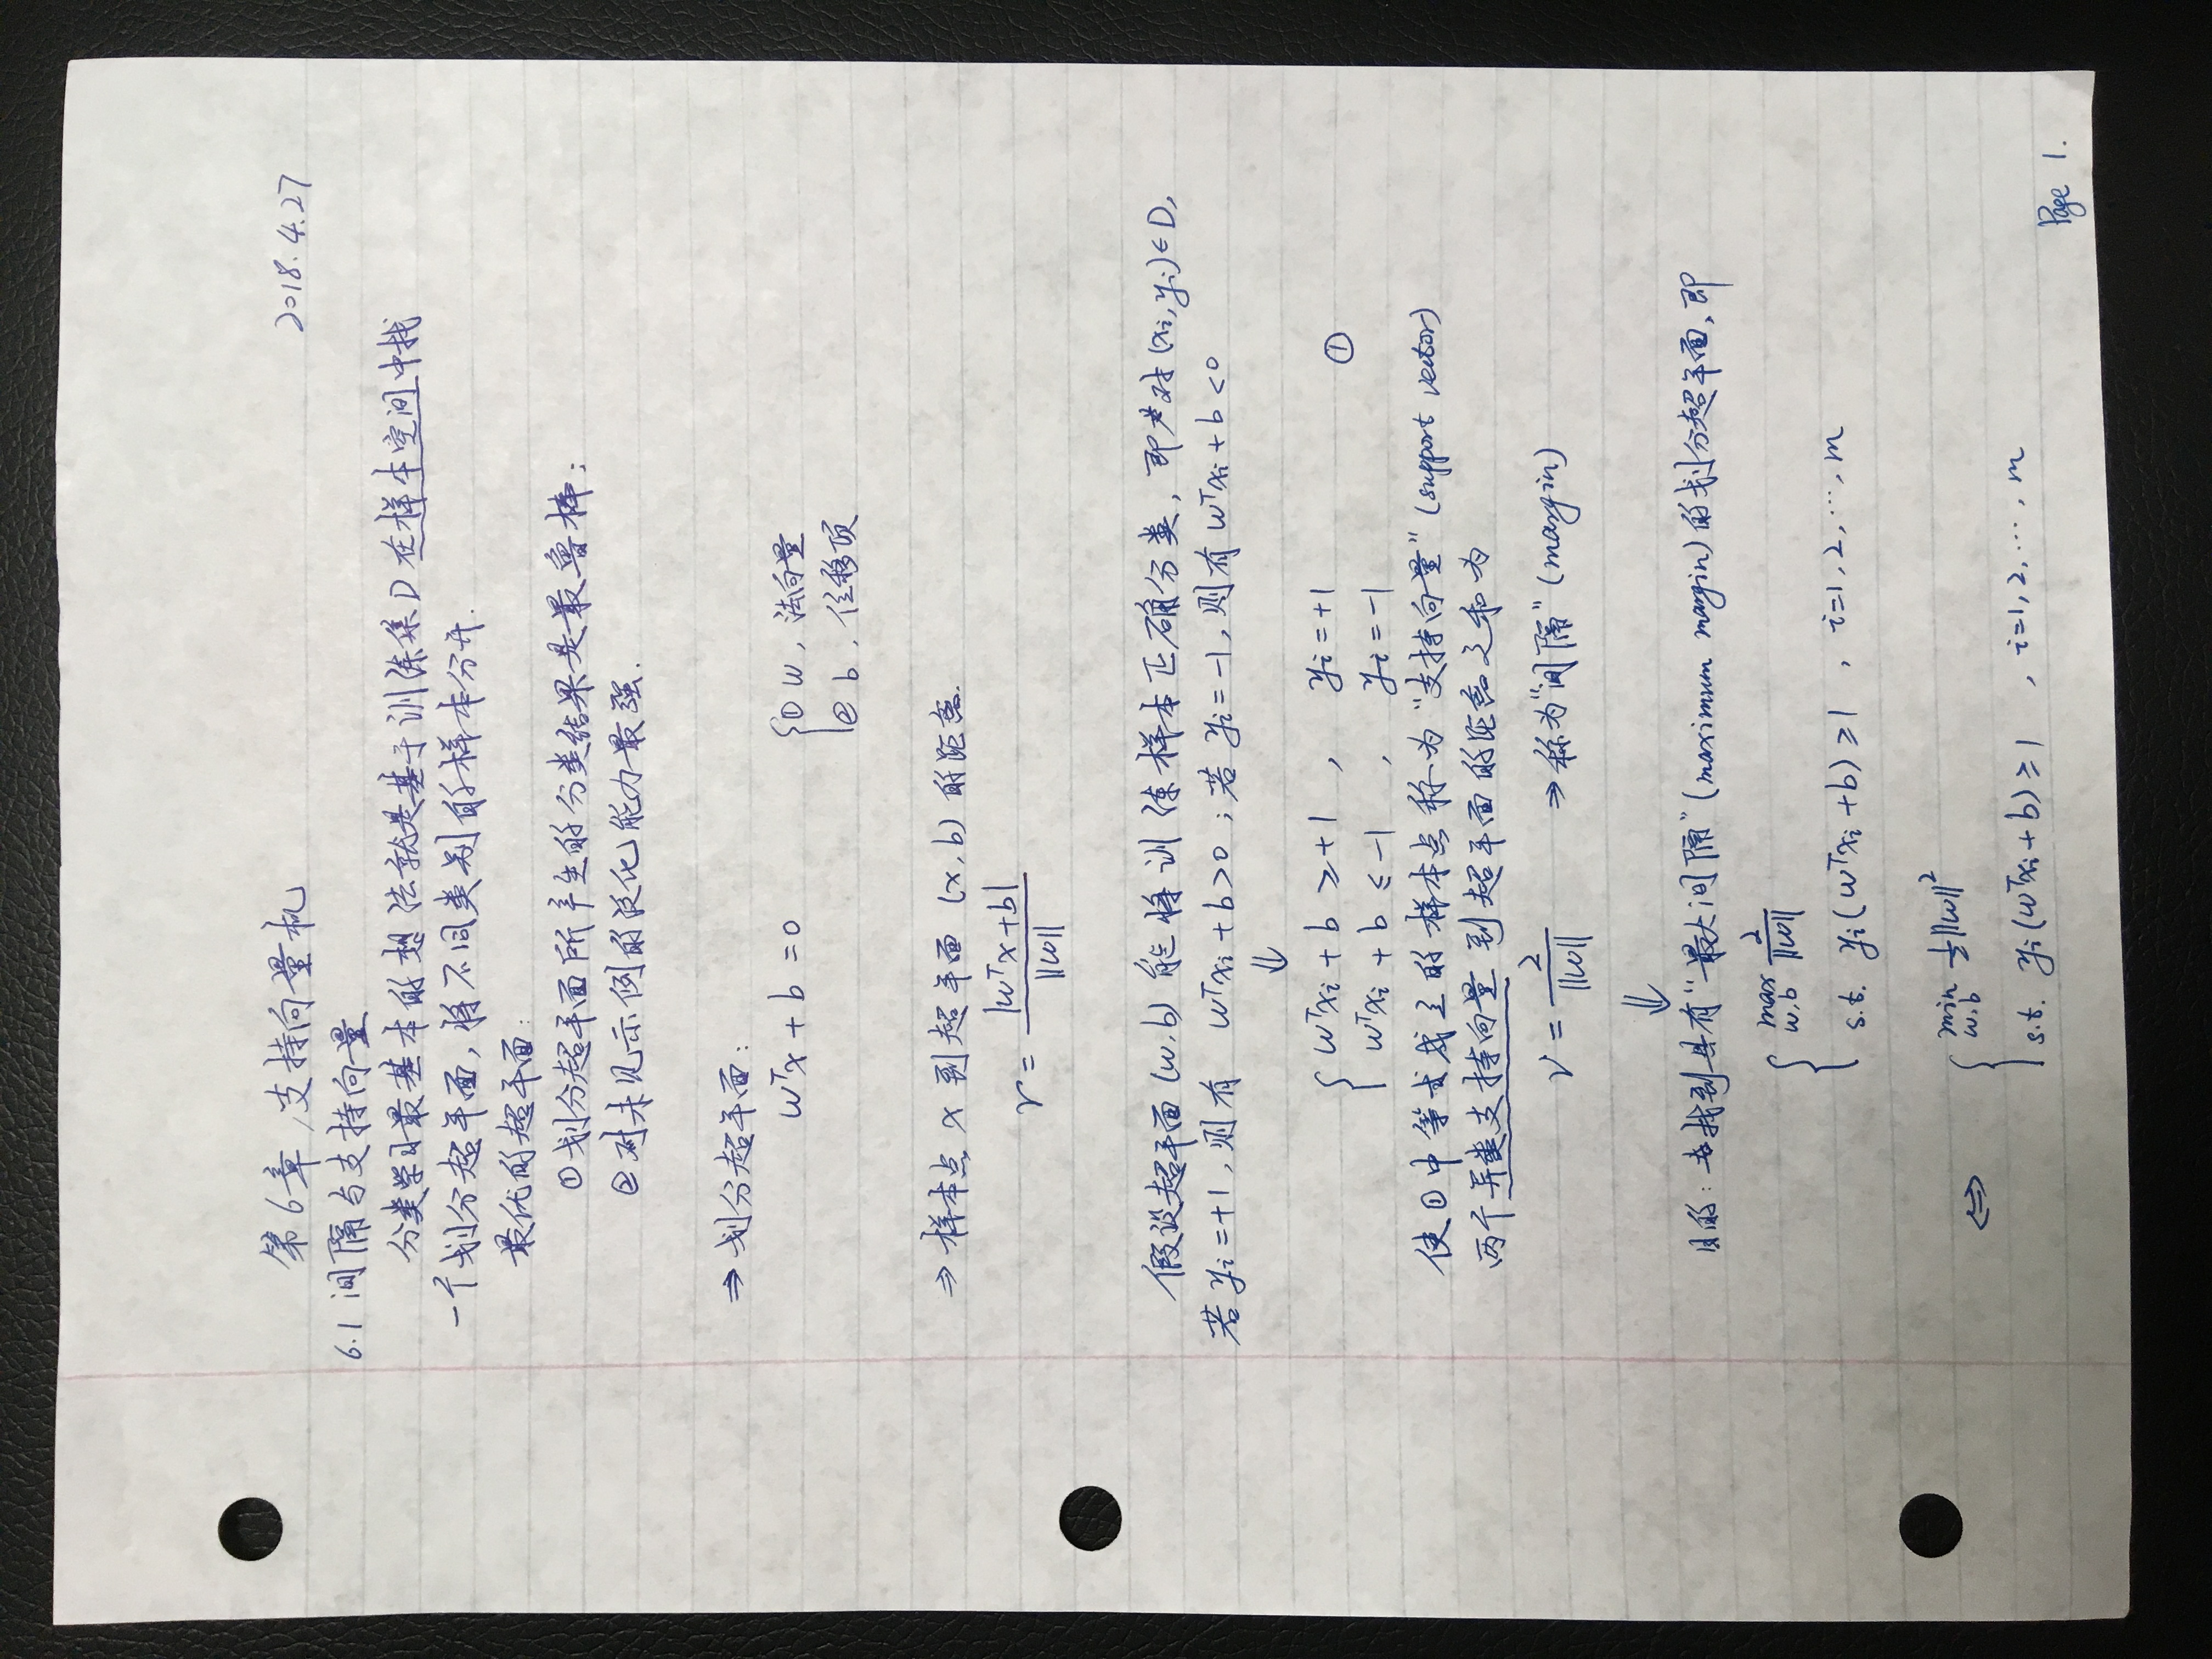 第6章 支持向量机 2018.4.27
6.1 间隔与支持向量
分类学习最基本的想法就是基于训练集D在样本空间中找
一个划分超平面,将不同类别的样本分开.
最优的超平面:
①划分超平面所产生的分类结果是最鲁棒;
②对未见示例的泛化能力最强.
⇒ 划分超平面:
wᵀx + b = 0 { ① w, 法向量
② b, 位移项
⇒ 样本点 x 到超平面 (x, b) 的距离.
r = |wᵀx + b| / ||w||
假设超平面(w, b) 能将训练样本正确分类, 即对(xᵢ, yᵢ)∈D,
若 yᵢ=+1, 则有 wᵀxᵢ + b > 0 ; 若 yᵢ=-1, 则有 wᵀxᵢ + b < 0
⇓
{ wᵀxᵢ + b ≥ +1 , yᵢ = +1 ①
wᵀxᵢ + b ≤ -1 , yᵢ = -1
使①中等式成立的样本点称为"支持向量" (support vector)
两个异类支持向量到超平面的距离之和为
γ = 2 / ||w|| ⇒ 称为"间隔" (margin)
⇓
目的: 找到具有"最大间隔" (maximum margin) 的划分超平面, 即
{ max w,b 2 / ||w||
s.t. yᵢ(wᵀxᵢ + b) ≥ 1 , i=1, 2, ⋯, m
⇔ { min w,b ½||w||²
s.t. yᵢ(wᵀxᵢ + b) ≥ 1 , i=1, 2, ⋯, m
Page 1.